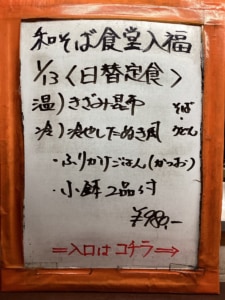 和そば食堂入福
1/13〈日替定食〉
温)きざみ昆布 そば
冷)冷やしたぬき風 ・うどん
・ふりかけごはん(かつお)
・小鉢2品付
¥980,-
⇒入口はコチラ⇒